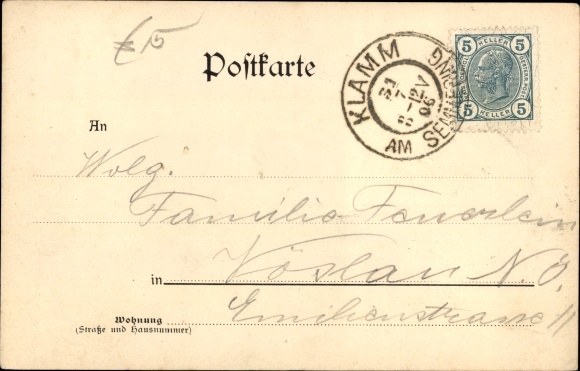 €5
Postkarte
KLAMM AM SEMMERING
31 7 06
5 HELLER 5
5 HELLER 5
An
Wolg.
Familie Feuerlein
in Vöslau N.Ö.
Wohnung Emilienstrasse 11
(Straße und Hausnummer)